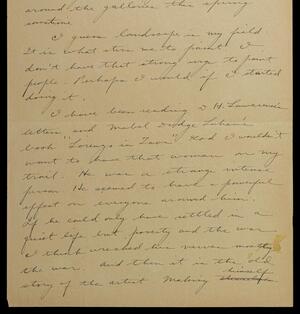 around the galleries this spring
sometime.
I guess landscape is my field
It is what stirs me to paint. I
don't have that strong urge to paint
people. Perhaps I would if I started
doing it.
I have been reading D H. Lawrence's
letters, and Mabel Dodge Luhan's
book "Lorenzo in Taos". God I wouldn't
want to have that woman on my
trail. He was a strange intense
person. He seemed to have a powerful
effect on everyone around him.
If he could only have settled in a
quiet life but poverty and the war
I think wrecked his nerves mostly
the war. And then it is the old
story of the artist making himself